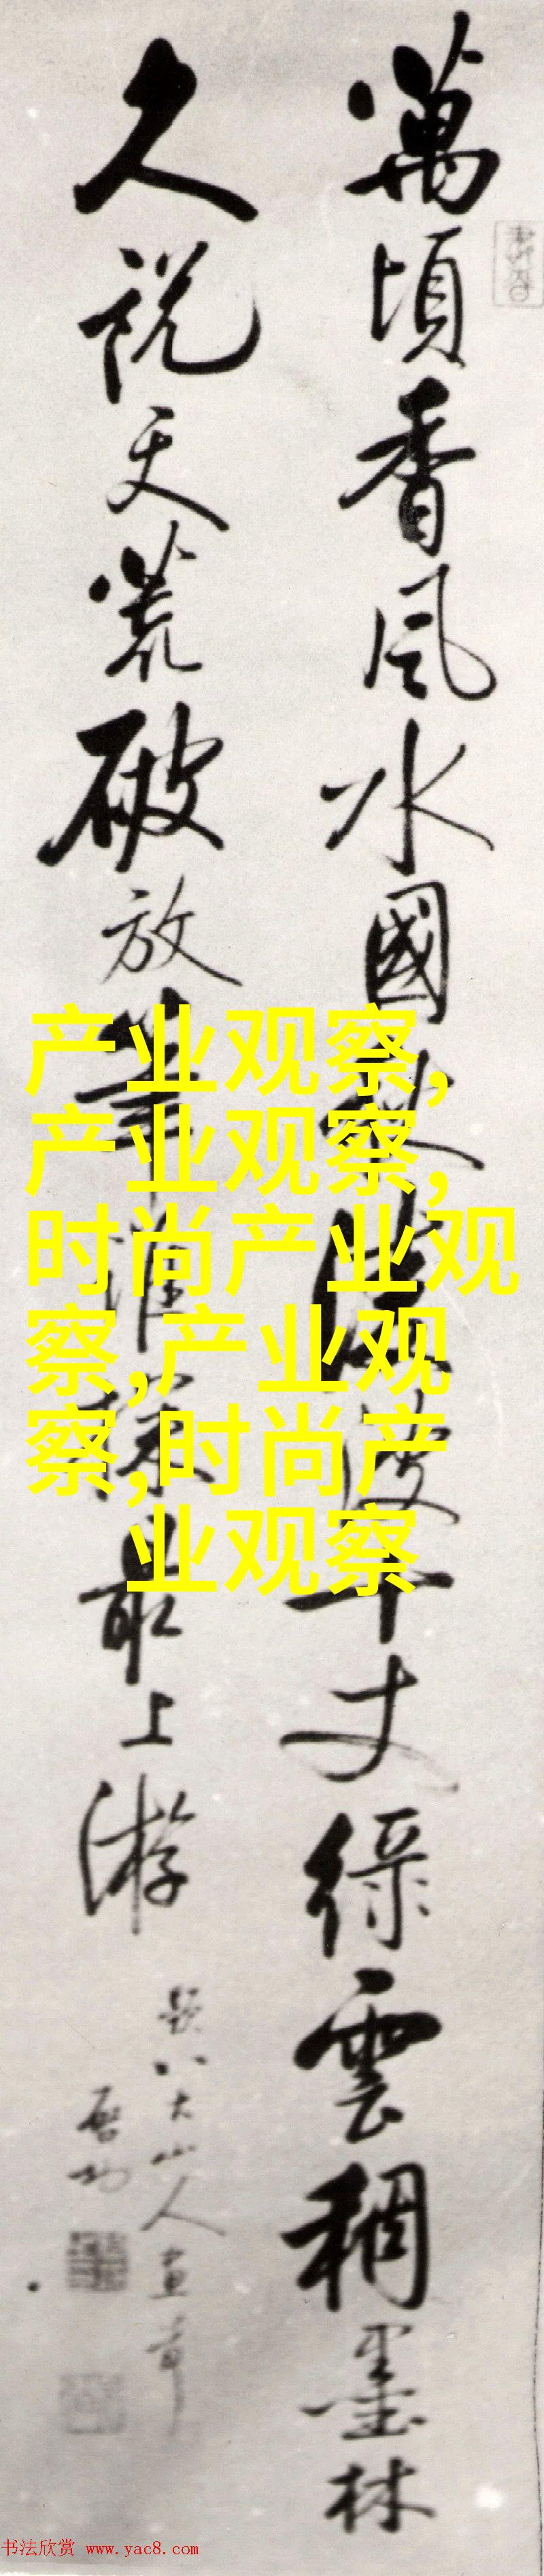 萬頃香風水國秋淩波千丈綠雲稠墨林
久説天荒破放筆誰攀最上游
題八大山人畫
啓功
产业观察,
产业观察,
时尚产业观
察,产业观
察,时尚产
业观察
书法欣赏 www.yac8.com